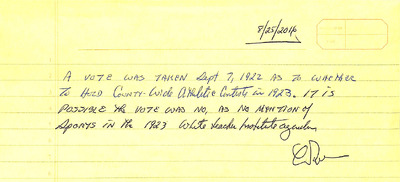 8/25/2016
A VOTE WAS TAKEN Sept 7, 1922 AS TO WHETHER
TO HOLD COUNTY-WIDE Athletic Contests in 1923. IT IS
POSSIBLE the VOTE WAS NO, AS NO MENTION of
SPORTS in the 1923 White teacher Institute agenda